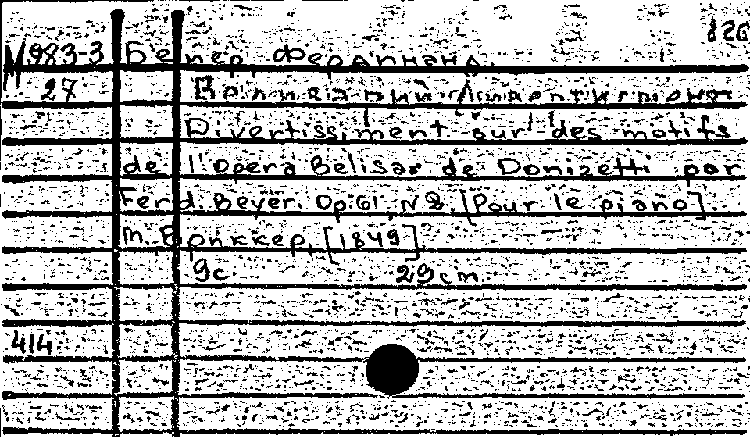 826
М 983-3 Бейер, Фердинанд.
27
Divertissiment sur des motifs
de l'opera Belisar de Donizetti par
Ferd. Beyer. Op. 61. N 8. [Pour le piano].
m. Бриккер, [1849]
9c 29cm
414